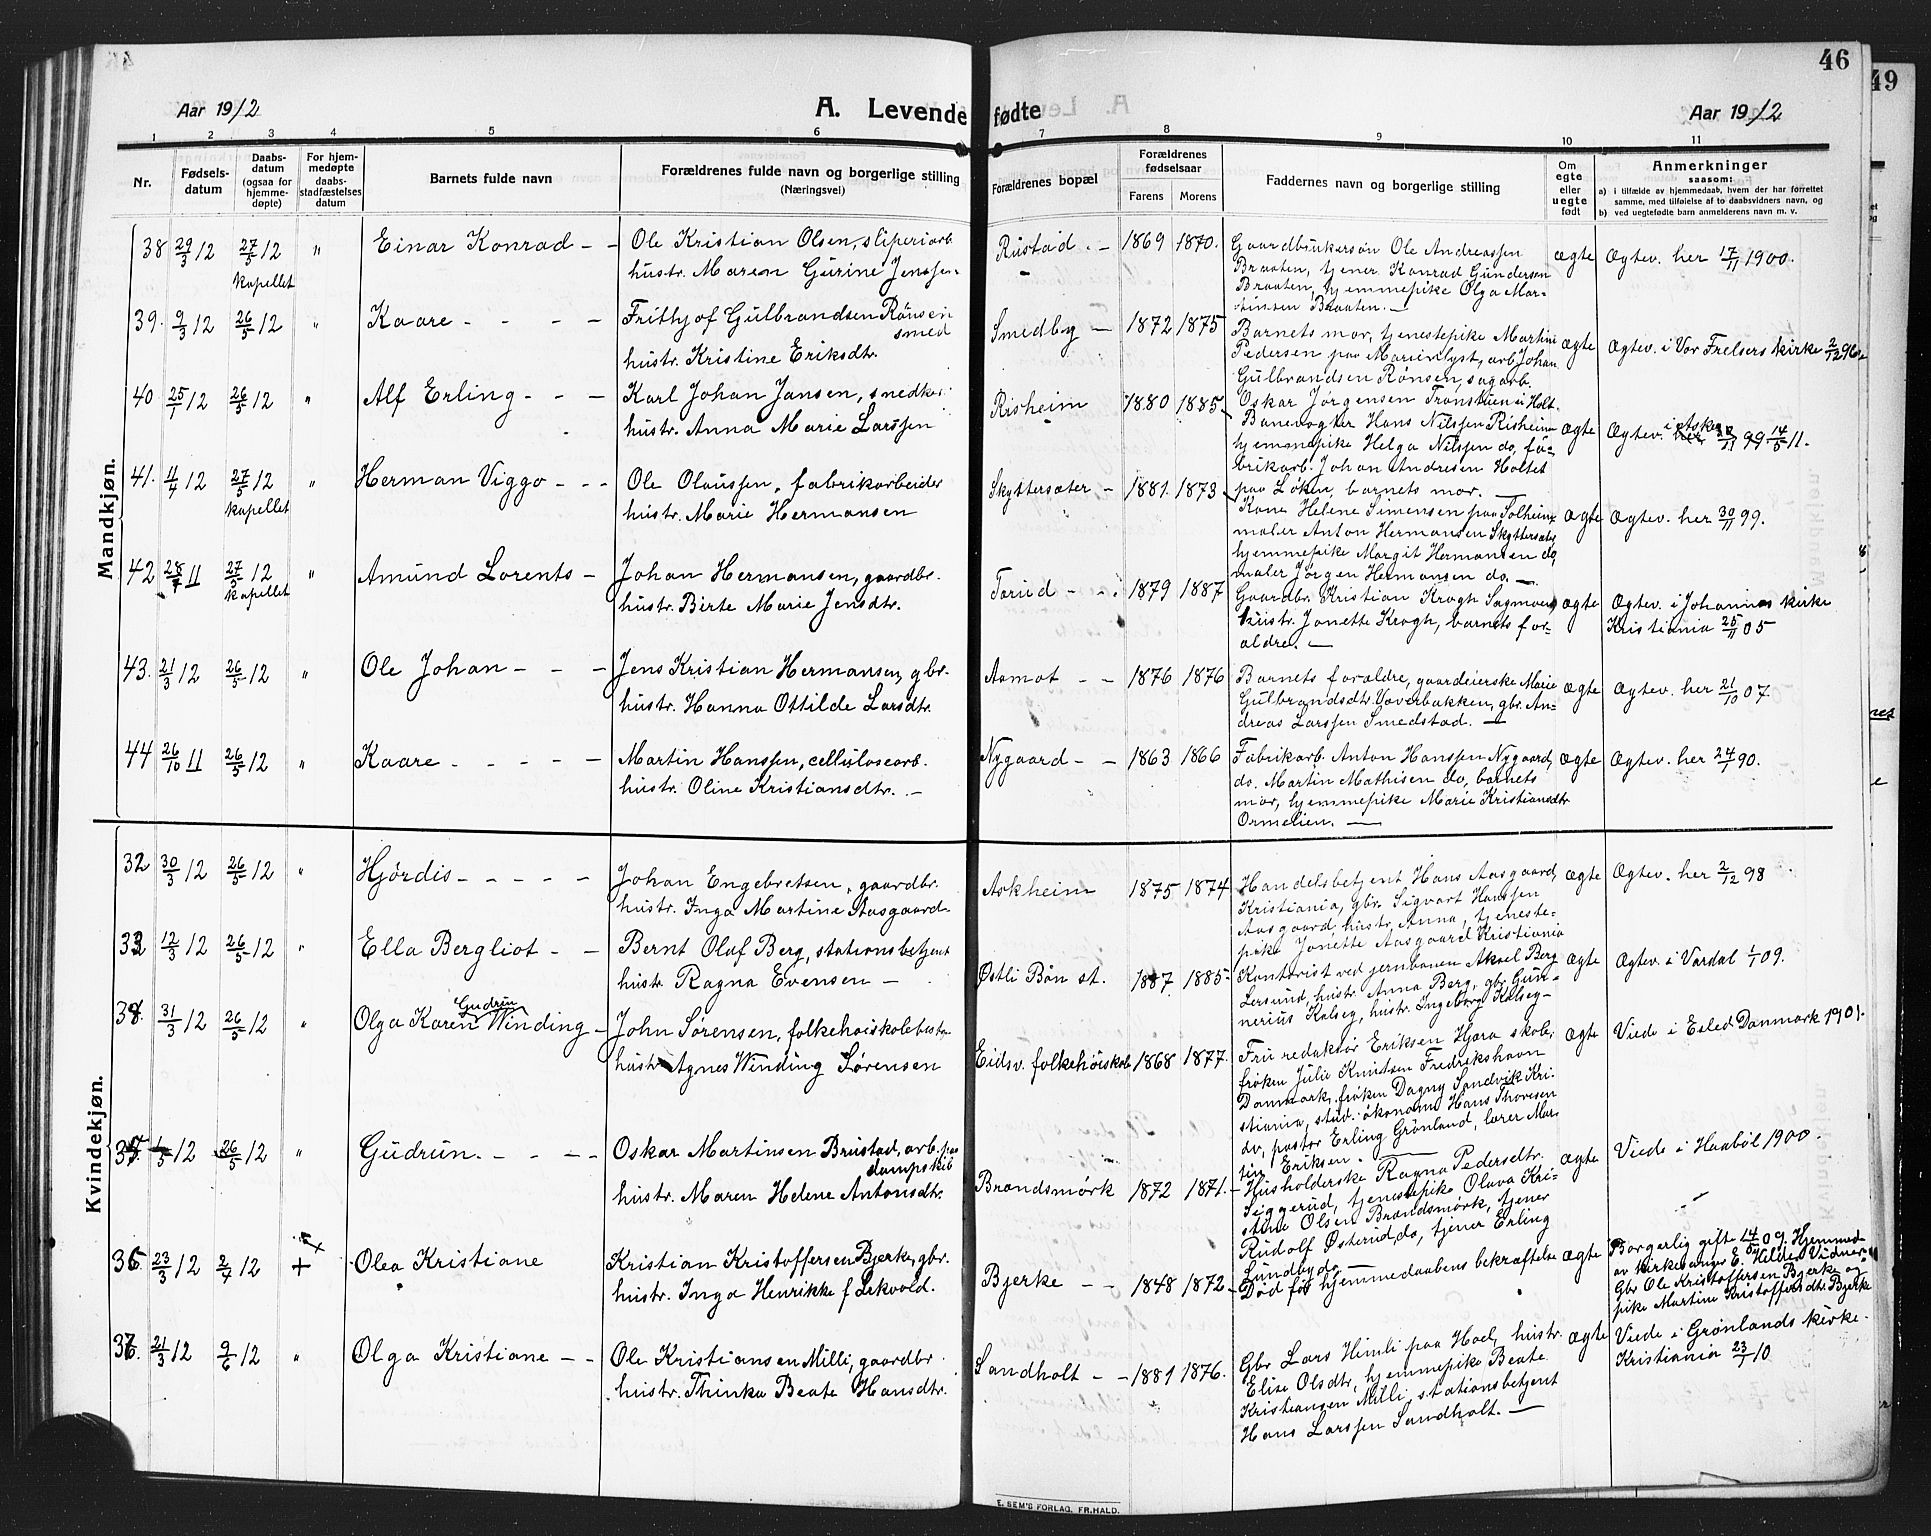 46
49
Aar 1912
A. Levende fødte
Aar 1912
1 2 3 4 5 6 7 8 9 10 11
Nr.
Fødsels-
datum
Daabs-
datum
(ogsaa for
hjemme-
døpte)
For hjem-
medøpte
daabs-
stadfæstelses
datum
Barnets fulde navn
Forældrenes fulde navn og borgerlige stilling
(Næringsvei)
Forældrenes bopæl
Forældrenes
fødselsaar
Farens Morens
Faddernes navn og borgerlige stilling
Om
egte
eller
uegte
født
Anmerkninger
saasom:
a) i tilfælde av hjemmedaab, hvem der har forrettet
samme, med tilføielse af to daabsvidners navn, og
b) ved uegtefødte barn anmelderens navn m. v.
Mandkjøn.
38 29/3 12 27/5 12 kapellet " Einar Konrad - -
Ole Kristian Olsen, sliperiarb.
hustr. Maren Gurine Jenssen.
Rustad. - 1869 1870.
Gaardbrukersøn Ole Andreassen
Braaten, tjener Konrad Gundersen
Braaten, hjemmepike Olga Mar-
tinsen Braaten. -
ægte Ægtev. her 17/11 1900.
39. 9/3 12 26/5 12 " Kaare - - - -
Frithjof Gulbrandsen Rønsen
smed
hustr. Kristine Eriksdtr.
Smedby - 1872 1875
Barnets mor, tjenestepike Martine
Pedersen paa Marienlyst, arb. Johan
Gulbrandsen Rønsen, sagarb.
Oskar Jørgensen Trønstuen i Holt.
ægte Ægtev. i Vor Frelsers kirke 2/12 96
40 25/1 12 26/5 12 " Alf Erling - - -
Karl Johan Jansen, snedker
hustr. Anna Marie Larssen
Risheim 1880 1885
Banevogter Hans Nilssen Risheim
hjemmepike Helga Nilssen do, fa-
brikarb. Johan Andresen Holtet
paa Løken, barnets mor. -
ægte Ægtev. i Asker 14/5 11.
41. 4/4 12 27/5 12 kapellet " Herman Viggo - - -
Ole Olaussen, fabrikarbeider
hustr. Marie Hermansen
Skyttersæter - 1881. 1873
Kone Helene Simensen paa Solheim
maler Anton Hermansen Skyttersæter
hjemmepike Margit Hermansen do,
maler Jørgen Hermansen do. -
ægte Ægtev. her 30/11 99.
42 28/7 11 27/5 12 kapellet " Amund Lorents -
Johan Hermansen, gaardbr.
hustr. Birte Marie Jensdtr.
Tørud - - 1879 1887
Gaardbr. Kristian Krogh Sagmoen,
hustr. Jonette Krogh, barnets for-
ældre. -
ægte Ægtev. i Johannes kirke
Kristiania 25/11 05
43. 21/3 12 26/5 12 " Ole Johan - - -
Jens Kristian Hermansen, gbr.
hustr. Hanna Ottilde Larsdtr.
Aamot - - 1876 1876
Barnets forældre, gaardeierske Marie
Gulbrandsdtr. Vaverbakken, gbr. An-
dreas Larssen Smedstad. -
ægte Ægtev. her 21/10 07.
44 26/10 11 26/5 12 " Kaare - - - - -
Martin Hanssen, cellulosearb.
hustr. Oline Kristiansdtr. -
Nygaard - - 1863 1866
Fabrikarb. Anton Hanssen Nygaard,
do. Martin Mathisen do, barnets
mor, hjemmepike Marie Kristiansdtr
Ormelien. -
ægte Ægtev. her 24/1 90.
Kvindekjøn.
32 30/3 12 26/5 12 " Hjørdis - - - - -
Johan Engebretsen, gaardbr.
hustr. Inga Martine Aasgaard.
Askheim 1875 1874
Handelsbetjent Hans Aasgaard,
Kristiania, gbr. Sigvart Hanssen
Aasgaard, hustr. Anna, tjeneste-
pike Jonette Aasgaard Kristiania
ægte Ægtev. her 2/12 98
33 12/3 12 26/5 12 " Ella Bergliot - -
Bernt Olaf Berg, stationsbetjent
hustr. Ragna Evensen -
Østli Bøn st. 1887. 1885
Kontorist ved jernbanen Aksel Berg
Lersund, hustr. Anna Berg, gbr. Gun-
nerius Kalseg, hustr. Ingeborg Kalseg -
ægte Ægtev. i Vardal 1/1 09.
34. 31/3 12 26/5 12 " Olga Karen Gudrun Winding -
John Sørensen, folkehøiskolebest.
hustr. Agnes Winding Sørensen
Eidsv. folkehøiskole 1868 1877.
Fru redaktør Eriksen Hjøra skole,
frøken Julie Knutsen Fredrikshavn
Danmark, frøken Dagny Sandvik Kri-
stiania, stud. økonom. Hans Thoresen
do, pastor Erling Grønland, lærer Mar-
tin Eriksen. -
ægte Viede i Esled Danmark 1901.
35 1/5 12 26/5 12 " Gudrun. - - - -
Oskar Martinsen Brustad, arb. paa
dampskib
hustr. Maren Helene Antonsdtr.
Brandsmørk 1872 1871.
Husholderske Ragna Pedersdtr.
Siggerud, tjenestepike Olava Kri-
stine Olsen Brandsmørk, tjener
Rudolf Østerud, do, tjener Erling
Lundby do -
ægte Viede i Haabøl 1900.
36. 23/3 12 2/4 12 + Olea Kristiane
Kristian Kristoffersen Bjerke, gbr.
hustr. Inga Henrikke f Lekvold.
Bjerke - - 1848 1872
Død før hjemmedaabens bekræftelse
ægte Borgerlig gifte 14/8 09. Hjemmed
av kirkesanger E. Hilde. Vidner
Gbr Ole Kristoffersen Bjerke og
pike Martine Kristoffersdtr. Bjerke
37. 21/3 12 9/6 12 " Olga Kristiane - -
Ole Kristiansen Milli, gaardbr.
hustr. Thinka Beate Hansdtr.
Sandholt - - 1881 1876.
Gbr Lars Himli paa Hoel, hustr.
Elise Olsdtr, hjemmepike Beate
Kristiansen Milli, stationsbetjent
Hans Larssen Sandholt. -
ægte Viede i Grønlands kirke.
Kristiania 23/1 10
E. SEM'S FORLAG, FR.HALD.